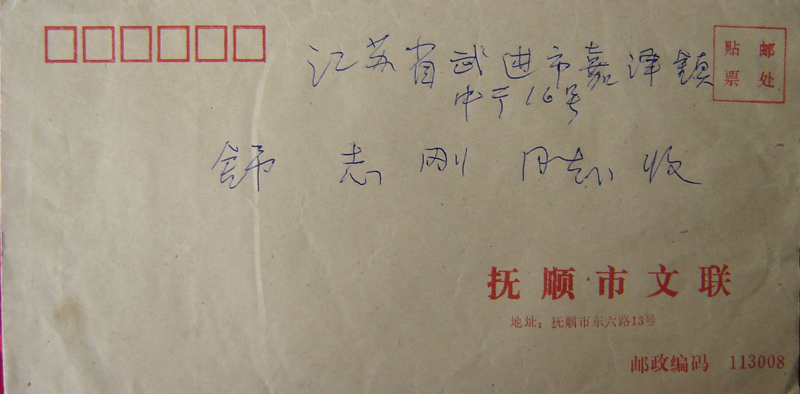 江苏省武进市嘉泽镇
中亍16号
贴 邮
票 处
舒 志 刚 同志 收
抚顺市文联
地址：抚顺市东六路13号
邮政编码 113008